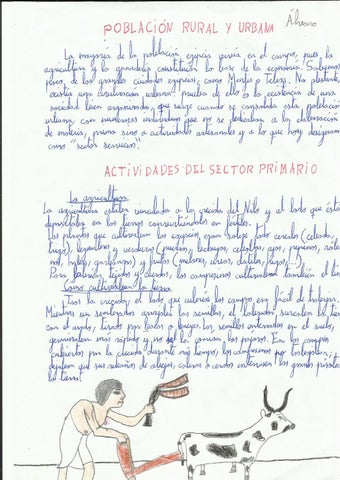 POBLACIÓN RURAL Y URBANA
Álvaro
La mayoría de la población egipcia vivía en el campo, pues la
agricultura y la ganadería constituían la base de la economía. Sabemos
de las grandes ciudades egipcias, como Menfis o Tebas. No obstante,
existía una civilización urbana; prueba de ello es la existencia de una
sociedad bien organizada, que surge cuando se consolida esta población
urbana, con numerosos individuos que no se dedicaban a la elaboración
de materia prima sino a actividades artesanales y a lo que hoy designamos
como "sector servicios".
ACTIVIDADES DEL SECTOR PRIMARIO
La agricultura
La agricultura estaba vinculada a la crecida del Nilo y al lodo que ésta
depositaba en las tierras convirtiéndolas en fértiles.
Las plantas que cultivaban los egipcios eran sobre todo cereales (cebada,
trigo), legumbres y verduras (puerros, lechugas, cebollas, ajos, pepinos,
habas, garbanzos) y frutas (melones, uvas, dátiles, higos...).
Para fabricar tejidos y cuerdas, los campesinos cultivaban también el lino
Cómo cultivaban la tierra
Tras la crecida, el lodo que cubría los campos era fácil de trabajar.
Mientras que sembradores arrojaban las semillas, el labrador surcaba la tierra
con el arado, tirado por vacas o bueyes. Las semillas enterradas en el suelo,
germinaban más rápido y no se las comían los pájaros. En los campos
cubiertos por la crecida durante más tiempo los campesinos no trabajaban;
dejaban que sus rebaños de ovejas, cabras o cerdos enterrasen los granos
la tierra.